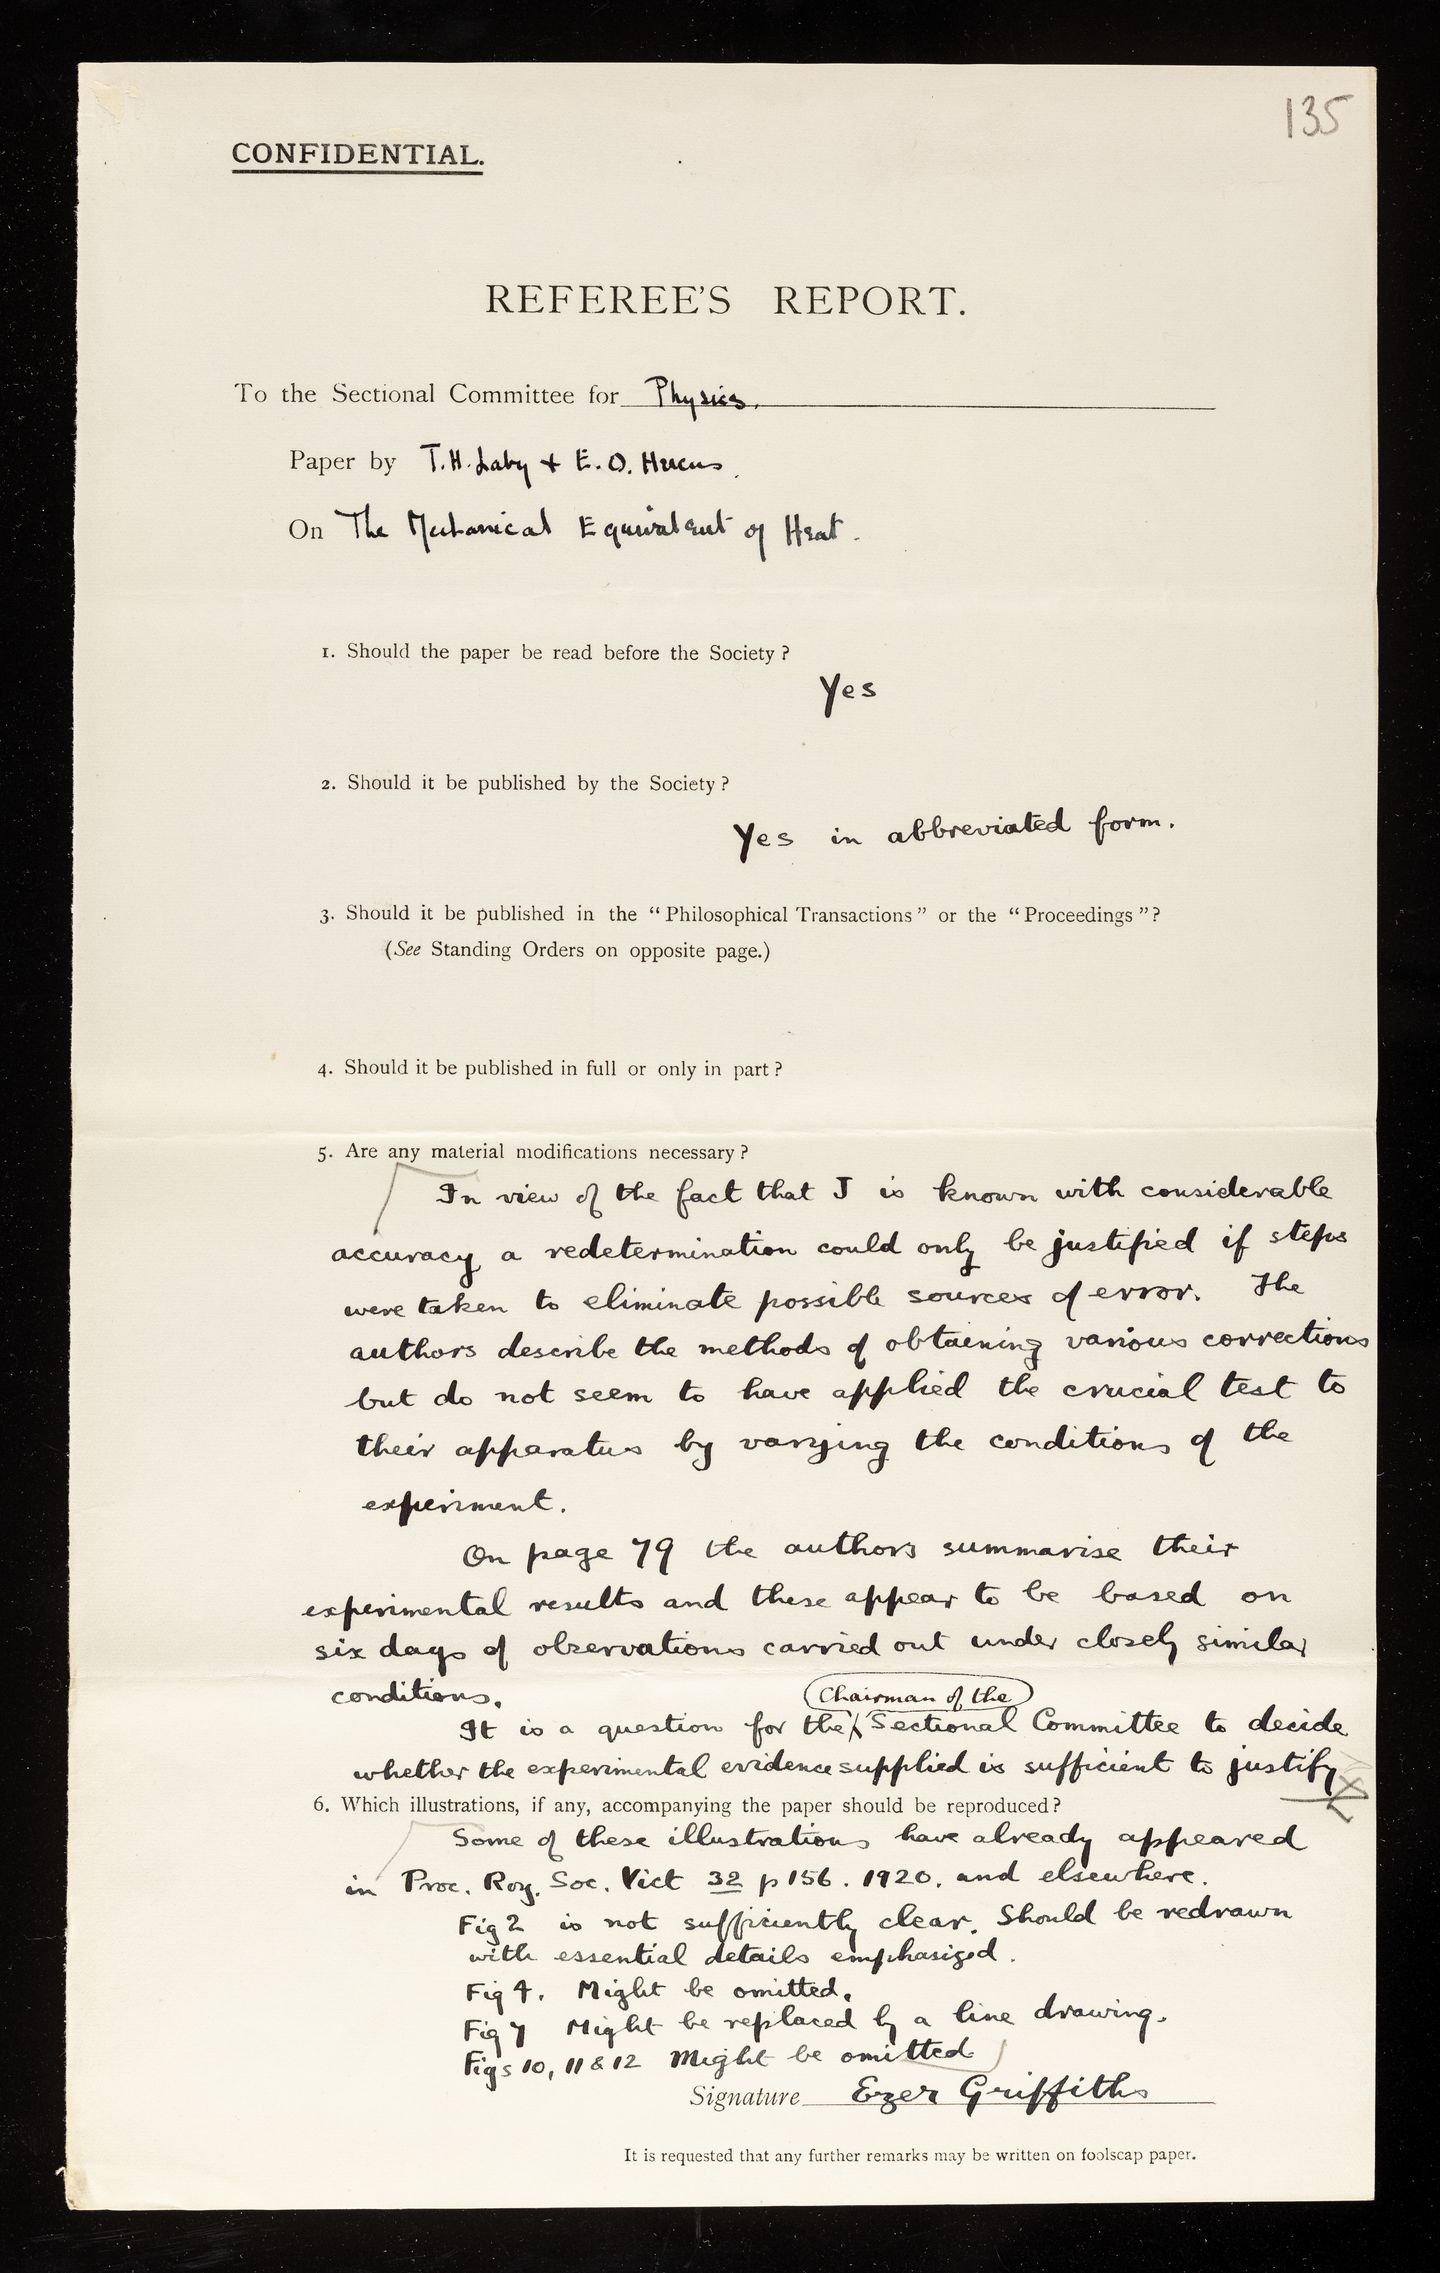 135
CONFIDENTIAL.
REFEREE'S REPORT.
To the Sectional Committee for Physics.
Paper by T.H. Laby + E.O. Hercus.
On The Mechanical Equivalent of Heat.
1. Should the paper be read before the Society?
Yes
2. Should it be published by the Society?
Yes in abbreviated form.
3. Should it be published in the "Philosophical Transactions" or the "Proceedings"?
(See Standing Orders on opposite page.)
4. Should it be published in full or only in part?
5. Are any material modifications necessary?
In view of the fact that J is known with considerable
accuracy a redetermination could only be justified if steps
were taken to eliminate possible sources of error. The
authors describe the methods of obtaining various corrections
but do not seem to have applied the crucial test to
their apparatus by varying the conditions of the
experiment.
On page 79 the authors summarise their
experimental results and these appear to be based on
six days of observations carried out under closely similar
conditions.
Chairman of the
It is a question for the Sectional Committee to decide
whether the experimental evidence supplied is sufficient to justify
6. Which illustrations, if any, accompanying the paper should be reproduced?
Some of these illustrations have already appeared
in Proc. Roy. Soc. Vict 32 p 156. 1920. and elsewhere.
Fig 2 is not sufficiently clear. Should be redrawn
with essential details emphasized.
Fig 4. Might be omitted.
Fig 7 Might be replaced by a line drawing.
Figs 10, 11 & 12 Might be omitted
Signature Ezer Griffiths
It is requested that any further remarks may be written on foolscap paper.